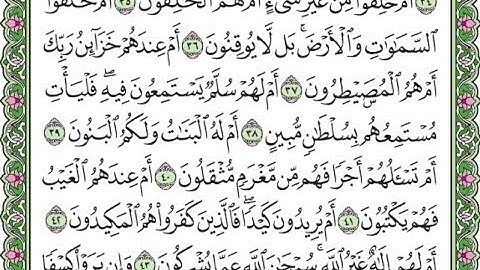 أَمْ خُلِقُوا۟ مِنْ غَيْرِ شَىْءٍ أَمْ هُمُ ٱلْخَٰلِقُونَ ٣٥ أَمْ خَلَقُوا۟
ٱلسَّمَٰوَٰتِ وَٱلْأَرْضَ ۚ بَل لَّا يُوقِنُونَ ٣٦ أَمْ عِندَهُمْ خَزَآئِنُ رَبِّكَ
أَمْ هُمُ ٱلْمُصَۣيْطِرُونَ ٣٧ أَمْ لَهُمْ سُلَّمٌ يَسْتَمِعُونَ فِيهِ ۖ فَلْيَأْتِ
مُسْتَمِعُهُم بِسُلْطَٰنٍ مُّبِينٍ ٣٨ أَمْ لَهُ ٱلْبَنَٰتُ وَلَكُمُ ٱلْبَنُونَ ٣٩
أَمْ تَسْـَٔلُهُمْ أَجْرًا فَهُم مِّن مَّغْرَمٍ مُّثْقَلُونَ ٤٠ أَمْ عِندَهُمُ ٱلْغَيْبُ
فَهُمْ يَكْتُبُونَ ٤١ أَمْ يُرِيدُونَ كَيْدًا ۖ فَٱلَّذِينَ كَفَرُوا۟ هُمُ ٱلْمَكِيدُونَ ٤٢
أَمْ لَهُمْ إِلَٰهٌ غَيْرُ ٱللَّهِ ۚ سُبْحَٰنَ ٱللَّهِ عَمَّا يُشْرِكُونَ ٤٣ وَإِن يَرَوْا۟ كِسْفًا